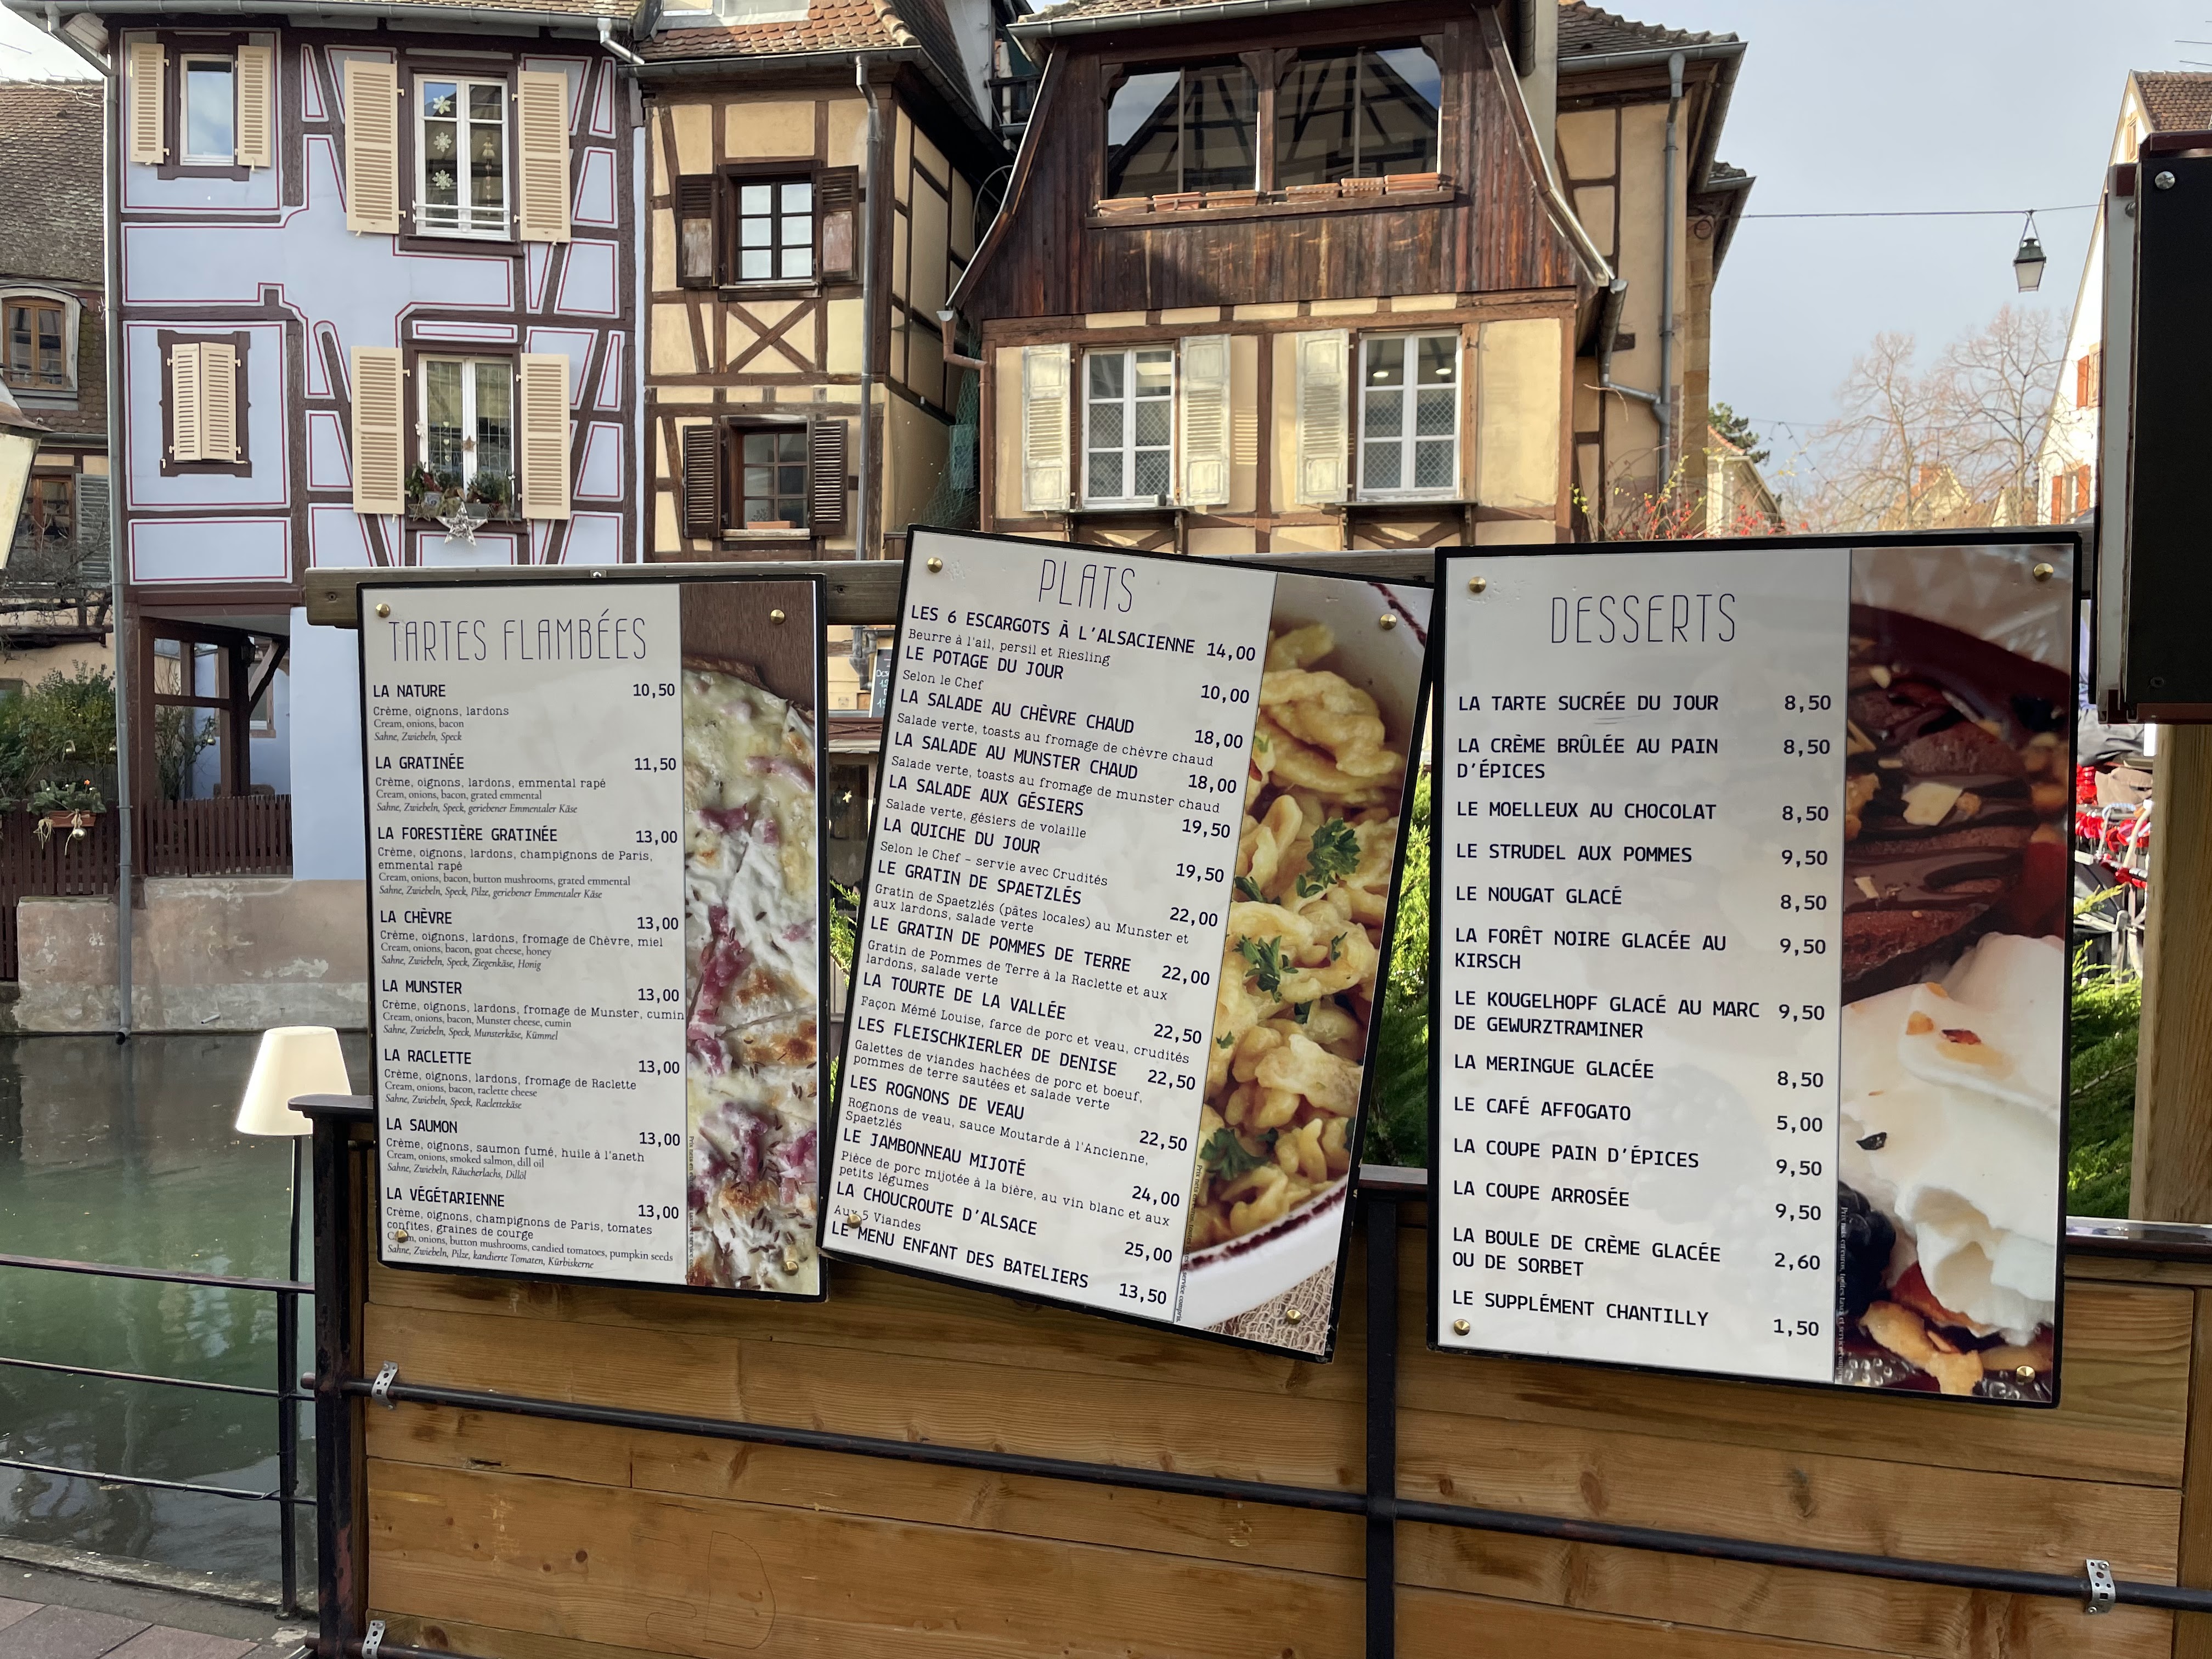 TARTES FLAMBÉES
LA NATURE 10,50
Crème, oignons, lardons
Cream, onions, bacon
Sahne, Zwiebeln, Speck
LA GRATINÉE 11,50
Crème, oignons, lardons, emmental rapé
Cream, onions, bacon, grated emmental
Sahne, Zwiebeln, Speck, geriebener Emmentaler Käse
LA FORESTIÈRE GRATINÉE 13,00
Crème, oignons, lardons, champignons de Paris,
emmental rapé
Cream, onions, bacon, button mushrooms, grated emmental
Sahne, Zwiebeln, Speck, Pilze, geriebener Emmentaler Käse
LA CHÈVRE 13,00
Crème, oignons, lardons, fromage de Chèvre, miel
Cream, onions, bacon, goat cheese, honey
Sahne, Zwiebeln, Speck, Ziegenkäse, Honig
LA MUNSTER 13,00
Crème, oignons, lardons, fromage de Munster, cumin
Cream, onions, bacon, Munster cheese, cumin
Sahne, Zwiebeln, Speck, Munsterkäse, Kümmel
LA RACLETTE 13,00
Crème, oignons, lardons, fromage de Raclette
Cream, onions, bacon, raclette cheese
Sahne, Zwiebeln, Speck, Raclettekäse
LA SAUMON 13,00
Crème, oignons, saumon fumé, huile à l'aneth
Cream, onions, smoked salmon, dill oil
Sahne, Zwiebeln, Räucherlachs, Dillöl
LA VÉGÉTARIENNE 13,00
Crème, oignons, champignons de Paris, tomates
confites, graines de courge
Cream, onions, button mushrooms, candied tomatoes, pumpkin seeds
Sahne, Zwiebeln, Pilze, kandierte Tomaten, Kürbiskerne
PLATS
LES 6 ESCARGOTS À L'ALSACIENNE 14,00
Beurre à l'ail, persil et Riesling
LE POTAGE DU JOUR 10,00
Selon le Chef
LA SALADE AU CHÈVRE CHAUD 18,00
Salade verte, toasts au fromage de chèvre chaud
LA SALADE AU MUNSTER CHAUD 18,00
Salade verte, toasts au fromage de munster chaud
LA SALADE AUX GÉSIERS 19,50
Salade verte, gésiers de volaille
LA QUICHE DU JOUR 19,50
Selon le Chef - servie avec Crudités
LE GRATIN DE SPAETZLÉS 22,00
Gratin de Spaetzlés (pâtes locales) au Munster et
aux lardons, salade verte
LE GRATIN DE POMMES DE TERRE 22,00
Gratin de Pommes de Terre à la Raclette et aux
lardons, salade verte
LA TOURTE DE LA VALLÉE 22,50
Façon Mémé Louise, farce de porc et veau, crudités
LES FLEISCHKIERLER DE DENISE 22,50
Galettes de viandes hachées de porc et boeuf,
pommes de terre sautées et salade verte
LES ROGNONS DE VEAU 22,50
Rognons de veau, sauce Moutarde à l'Ancienne,
Spaetzlés
LE JAMBONNEAU MIJOTÉ 24,00
Pièce de porc mijotée à la bière, au vin blanc et aux
petits légumes
LA CHOUCROUTE D'ALSACE 25,00
Aux 5 Viandes
LE MENU ENFANT DES BATELIERS 13,50
DESSERTS
LA TARTE SUCRÉE DU JOUR 8,50
LA CRÈME BRÛLÉE AU PAIN 8,50
D'ÉPICES
LE MOELLEUX AU CHOCOLAT 8,50
LE STRUDEL AUX POMMES 9,50
LE NOUGAT GLACÉ 8,50
LA FORÊT NOIRE GLACÉE AU 9,50
KIRSCH
LE KOUGELHOPF GLACÉ AU MARC 9,50
DE GEWURZTRAMINER
LA MERINGUE GLACÉE 8,50
LE CAFÉ AFFOGATO 5,00
LA COUPE PAIN D'ÉPICES 9,50
LA COUPE ARROSÉE 9,50
LA BOULE DE CRÈME GLACÉE 2,60
OU DE SORBET
LE SUPPLÉMENT CHANTILLY 1,50